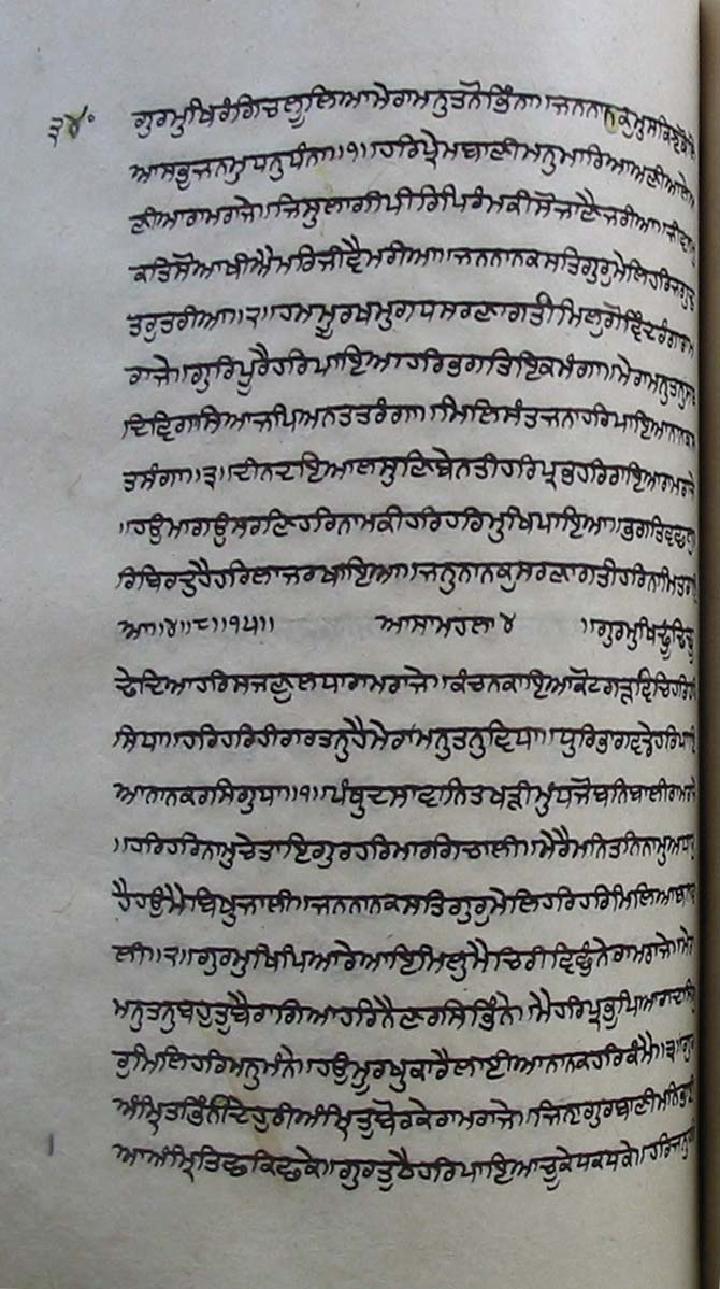 ੩੪੦
ਗੁਰਮੁਖਿਰੰਗਿਚਲੂਲਿਆਮੇਰਾਮਨੁਤਨੋਭਿੰਨਾ॥ਜਨਨਾਨਕੁਮੁਸਕਿ
ਆਸਭੁਜਨਮੁਧਨੁਧੰਨਾ॥੧॥ਹਰਿਪ੍ਰੇਮਬਾਣੀਮਨੁਮਾਰਿਆਅਣੀਆਲੇਅ
ਣੀਆਰਾਮਰਾਜੇ॥ਜਿਸੁਲਾਗੀਪੀਰਪਿਰੰਮਕੀਸੋਜਾਣੈਜਰੀਆ॥ਜੀਵਨਮੁ
ਕਤਿਸੋਆਖੀਐਮਰਿਜੀਵੈਮਰੀਆ॥ਜਨਨਾਨਕਸਤਿਗੁਰੁਮੇਲਿਹਰਿਜਗੁਦੁ
ਤਰੁਤਰੀਆ॥੨॥ਹਮਮੂਰਖਮੁਗਧਸਰਣਾਗਤੀਮਿਲੁਗੋਵਿੰਦਰੰਗਾਰਾਮ
ਰਾਜੇ॥ਗੁਰਿਪੂਰੈਹਰਿਪਾਇਆਹਰਿਭਗਤਿਇਕਮੰਗਾ॥ਮੇਰਾਮਨੁਤਨੁਸਬ
ਦਿਵਿਗਾਸਿਆਜਪਿਅਨਤਤਰੰਗਾ॥ਮਿਲਿਸੰਤਜਨਾਹਰਿਪਾਇਆਨਾਨਕਸ
ਤਸੰਗਾ॥੩॥ਦੀਨਦਇਆਲਸੁਣਿਬੇਨਤੀਹਰਿਪ੍ਰਭਹਰਿਰਾਇਆਰਾਮਰਾਜੇ
॥ਹਉਮਾਗਉਸਰਣਿਹਰਿਨਾਮਕੀਹਰਿਹਰਿਮੁਖਿਪਾਇਆ॥ਭਗਤਿਵਛਲੁਹ
ਰਿਬਿਰਦੁਹੈਹਰਿਲਾਜਰਖਾਇਆ॥ਜਨੁਨਾਨਕੁਸਰਣਾਗਤੀਹਰਿਨਾਮਿਤਰਾਇ
ਆ॥੪॥੮॥੧੫॥ ਆਸਾਮਹਲਾ੪ ॥ਗੁਰਮੁਖਿਢੂੰਢਿਢੂ
ਢੇਦਿਆਹਰਿਸਜਣੁਲਧਾਰਾਮਰਾਜੇ॥ਕੰਚਨਕਾਇਆਕੋਟਗੜਵਿਚਿਹਰਿਹਰਿ
ਸਿਧਾ॥ਹਰਿਹਰਿਹੀਰਾਰਤਨੁਹੈਮੇਰਾਮਨੁਤਨੁਵਿਧਾ॥ਧੁਰਿਭਾਗਵਡੇਹਰਿਪਾਇ
ਆਨਾਨਕਰਸਿਗੁਧਾ॥੧॥ਪੰਥੁਦਸਾਵਾਨਿਤਖੜੀਮੁੰਧਜੋਬਨਿਬਾਲੀਰਾਮਰਾਜੇ
॥ਹਰਿਹਰਿਨਾਮੁਚੇਤਾਇਗੁਰਹਰਿਮਾਰਗਿਚਾਲੀ॥ਮੇਰੈਮਨਿਤਨਿਨਾਮੁਆਧਾਰੁ
ਹੈਹਉਮੈਬਿਖੁਜਾਲੀ॥ਜਨਨਾਨਕਸਤਿਗੁਰੁਮੇਲਿਹਰਿਹਰਿਮਿਲਿਆਬਨਵਾ
ਲੀ॥੨॥ਗੁਰਮੁਖਿਪਿਆਰੇਆਇਮਿਲੁਮੈਚਿਰੀਵਿਛੁੰਨੇਰਾਮਰਾਜੇ॥ਮੇਰਾ
ਮਨੁਤਨੁਬਹੁਤੁਬੈਰਾਗਿਆਹਰਿਨੈਣਰਸਿਭਿੰਨੇ॥ਮੈਹਰਿਪ੍ਰਭੁਪਿਆਰਾਦਸਿਗੁ
ਰੁਮਿਲਿਹਰਿਮਨੁਮੰਨੇ॥ਹਉਮੂਰਖੁਕਾਰੈਲਾਈਆਨਾਨਕਹਰਿਕੰਮੈ॥੩॥ਗੁਰ
ਅੰਮ੍ਰਿਤਭਿੰਨੀਦੇਹੁਰੀਅੰਮ੍ਰਿਤੁਬੋਰਕੇਰਾਮਰਾਜੇ॥ਜਿਨਾਗੁਰਬਾਣੀਮਨਿਭਾਈ
ਆਅੰਮ੍ਰਿਤਿਛਕਿਛਕੇ॥ਗੁਰਤੁਠੈਹਰਿਪਾਇਆਚੂਕੇਧਕਧਕੇ॥ਹਰਿਜਨੁਹ